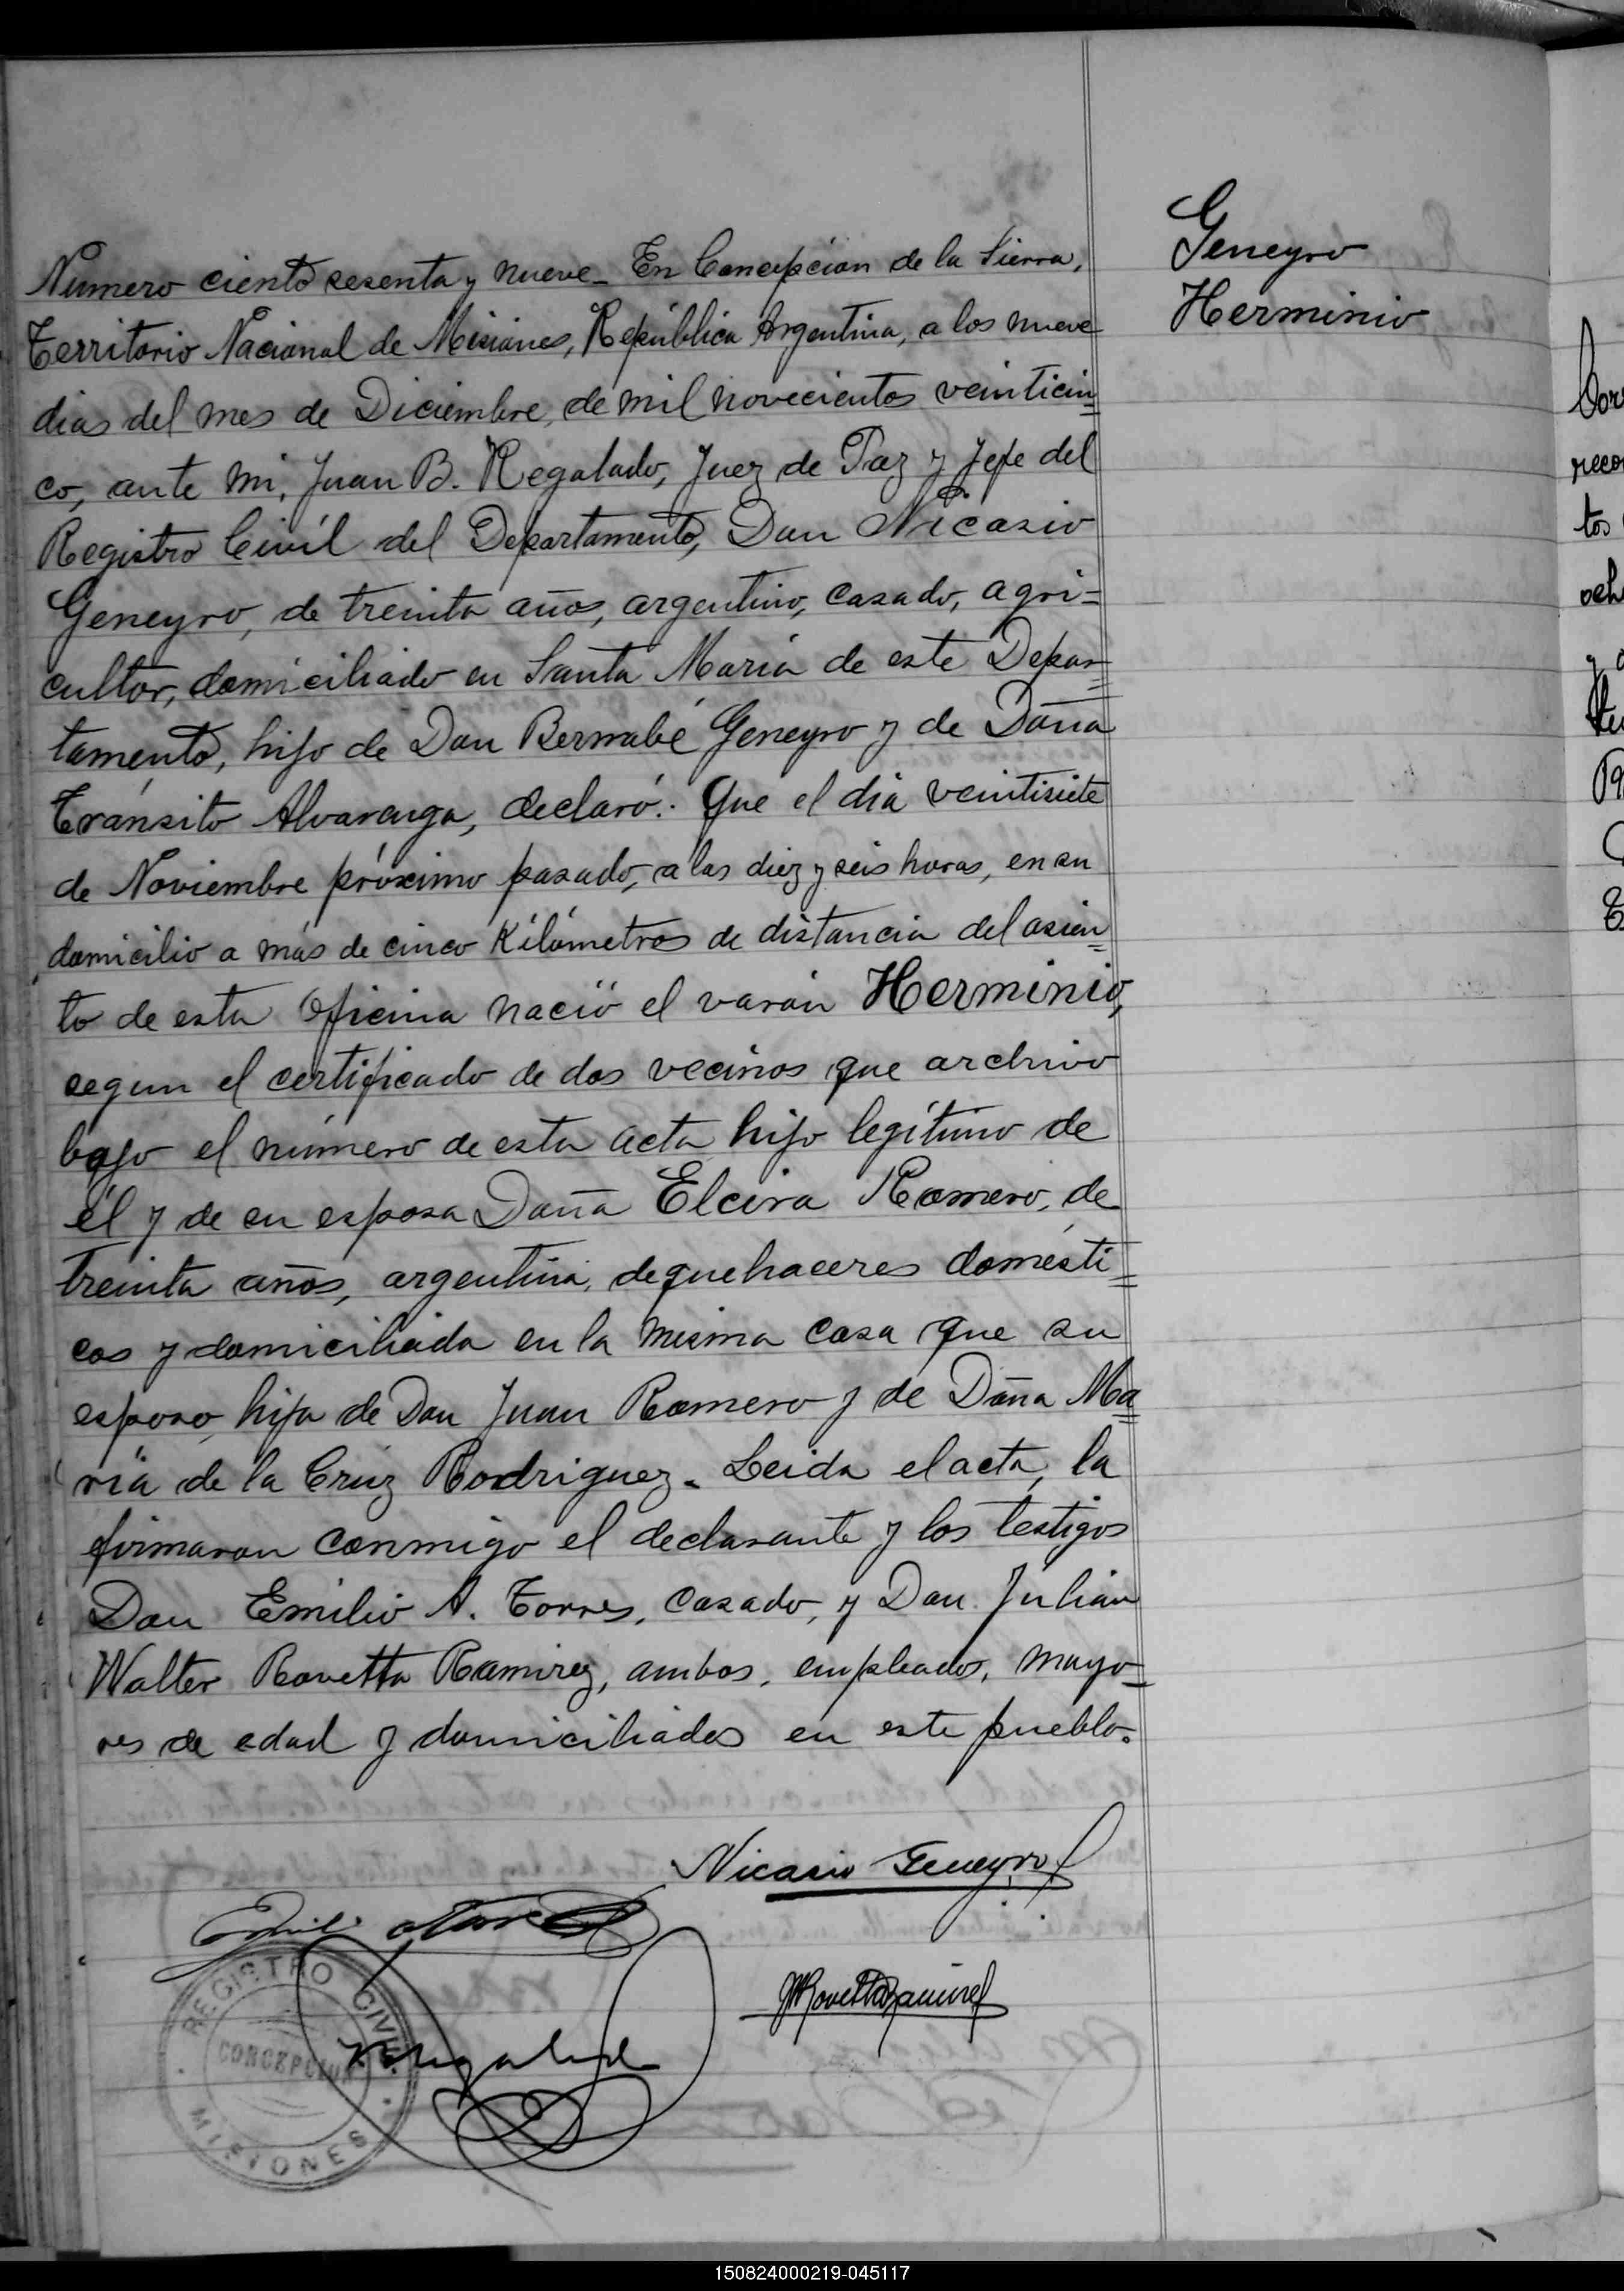 Geneyro
Herminio
Número ciento sesenta y nueve_ En Concepcion de la Sierra,
Territorio Nacional de Misiones, República Argentina, a los nueve
dias del mes de Diciembre, de mil novecientos veinticin=
co, ante mi, Juan B. Regalado, Juez de Paz y Jefe del
Registro Civíl del Departamento, Don Nicasio
Geneyro, de treinta años, argentino, casado, agri=
cultor, domiciliado en Santa María de este Depar=
tamento, hijo de Don Bernabé Geneyro y de Doña
Tránsito Alvarenga, declaró: Que el dia veintisiete
de Noviembre próximo pasado, a las diez y seis horas, en su
domicilio a más de cinco Kilómetros de distancia del asien=
to de esta Oficina nació el varón Herminio,
segun el certificado de dos vecinos que archivo
bajo el número de esta acta hijo legítimo de
él y de su esposa Doña Elcira Romero, de
treinta años, argentina, de quehaceres domésti=
cos y domiciliada en la misma casa que su
esposo, hija de Don Juan Romero y de Doña Ma=
ría de la Cruz Rodriguez. Leida el acta, la
firmaron conmigo el declarante y los testigos
Don Emilio A. Torres, casado, y Don Julian
Walter Rovetta Ramirez, ambos, empleados, mayo=
res de edad y domiciliados en este pueblo.
Nicasio Geneyro
Emilio A Torres
JWRovettaRamirez
REGISTRO CIVIL
CONCEPCION
MISIONES
150824000219-045117